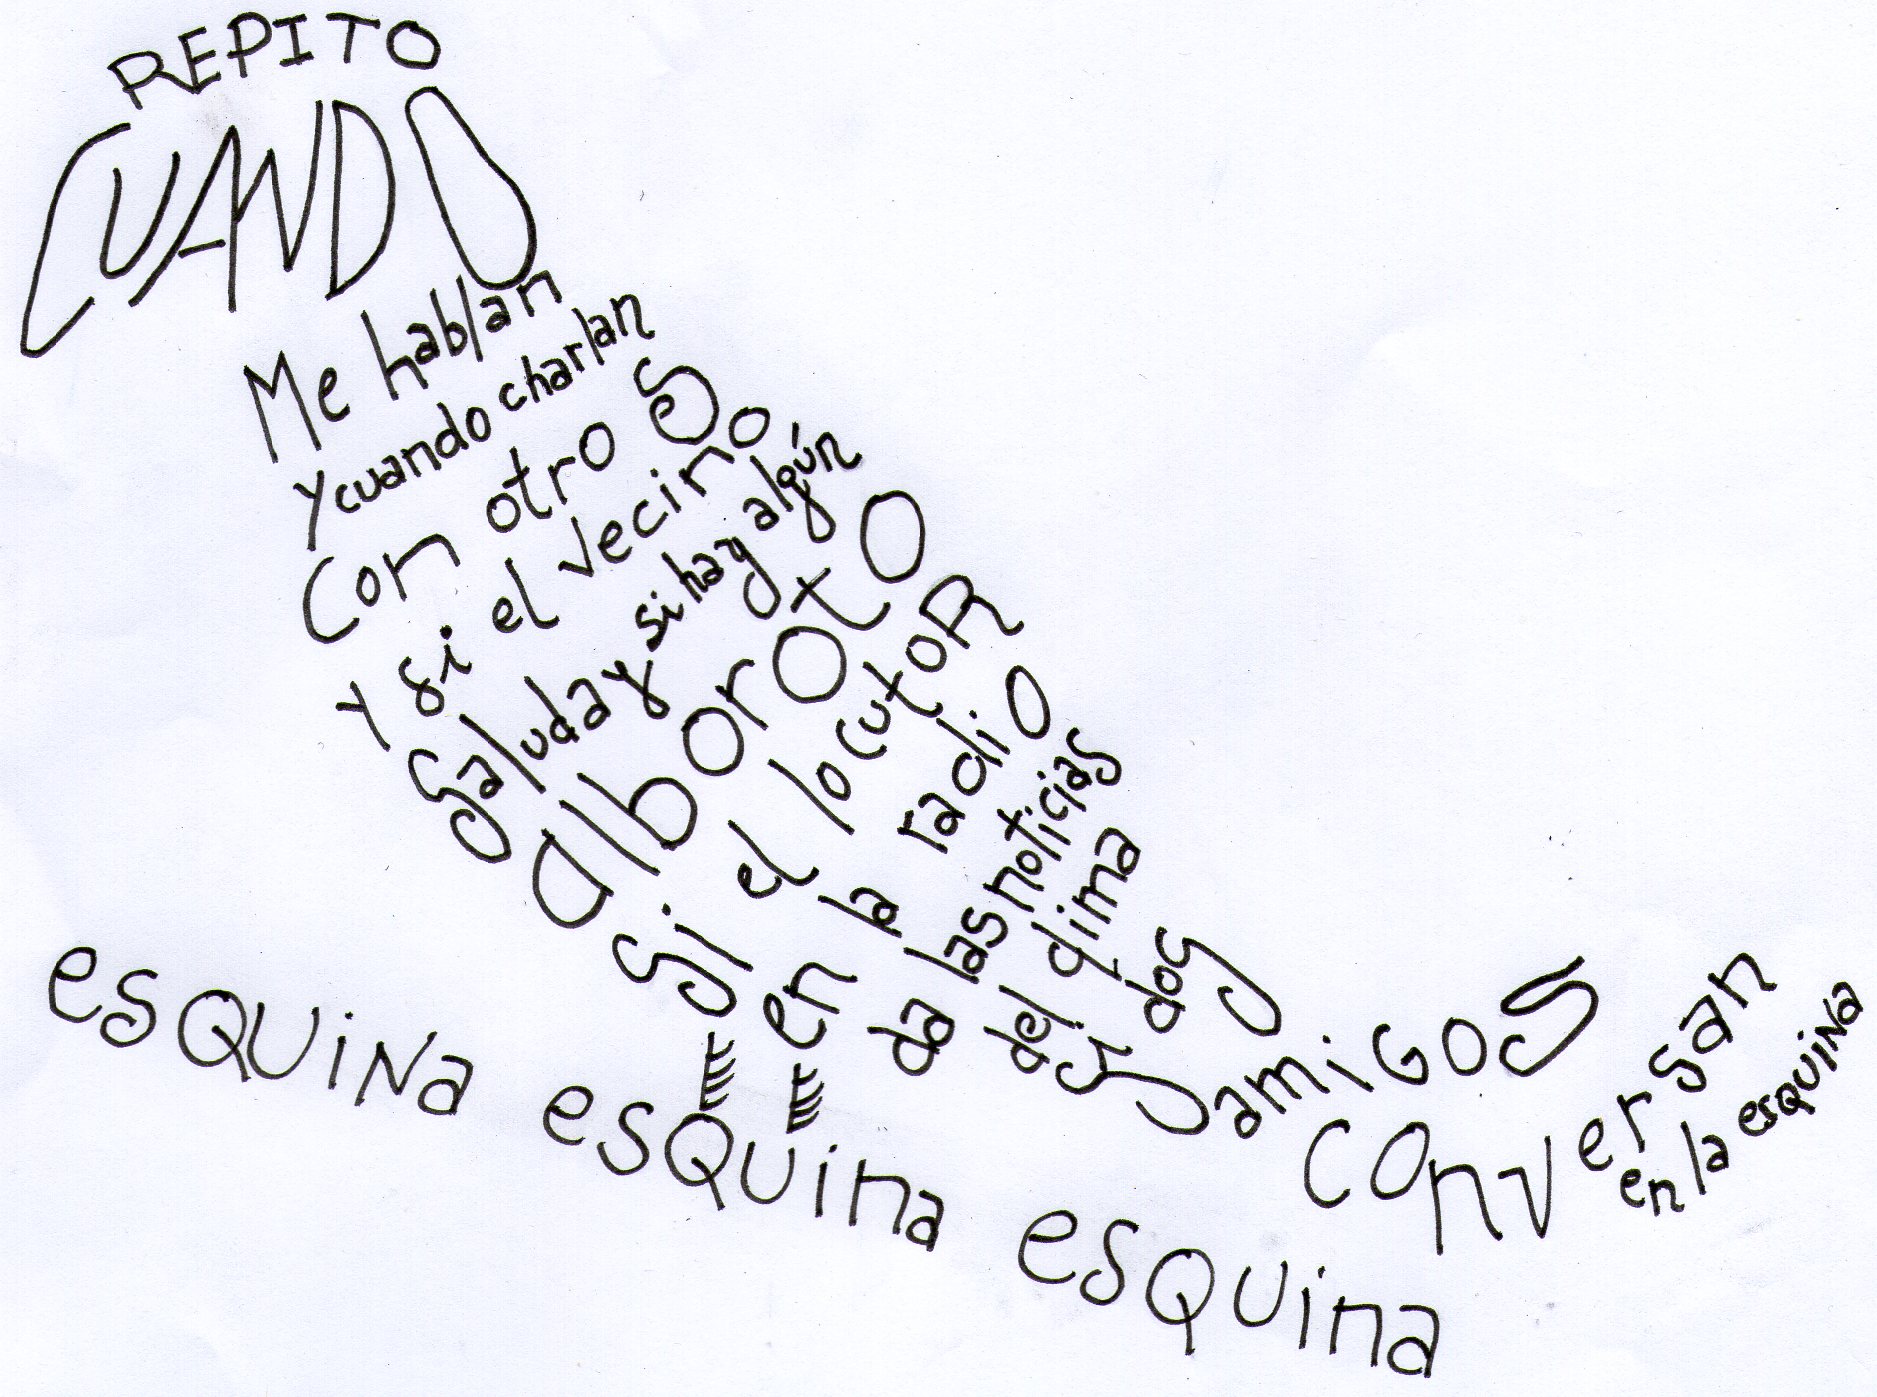 REPITO
CUANDO
Me hablan
y cuando charlan
con otros
y si el vecino
saluda y si hay algún
alborotO
si el locutoR
en la radiO
da las noticias
del clima
si dos amiGos
conversan
en la esquiNa
esQUiNa esQUina esQUina